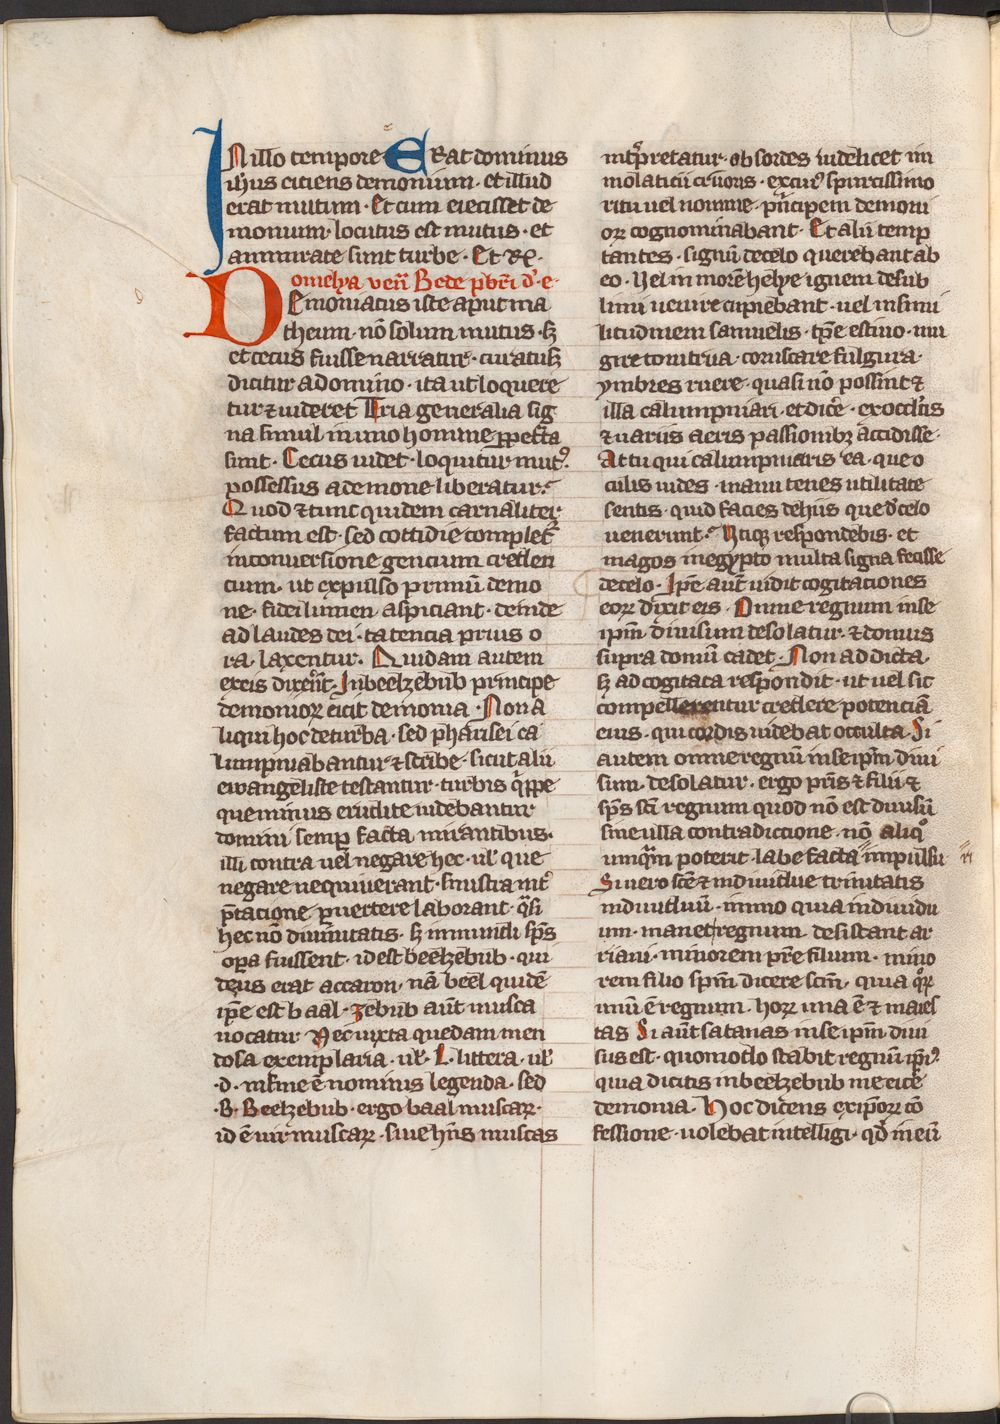 IN illo tempore Erat dominus
ih̄us eiciens demonium · et illud
erat mutum · Et cum eiecisset de
monium · locutus est mutus · et
ammirate sunt turbe · Et Rł·
omelya ven̄ Bede p̄bri d' e·
Demoniacus iste aput ma
theum · nō solum mutus · sꝫ
et cecus fuisse narratur · curatusꝫ
dicitur a domino · ita ut loquere
tur ⁊ uideret Tria generalia sig
na simul in uno homine ꝑpetᷓta
sunt · Cecus uidet · loquitur mutꝰ ·
possessus a demone liberatur ·
Quod ⁊ tunc quidem carnaliter
factum est · sed cottidie complet᷑
in conuersione gencium creden
cium · ut expulso primū demo
ne · fidei lumen aspiciant · deinde
ad laudes dei · tatencia prius o
ra · laxentur · Quidam autem
ex eis dixer̄t · In beelzebub principe
demonioꝝ eicit demonia · Non a
liqui hoc de turba · sed pharisei ca
lumpniabantur ⁊ scribe · sicut alii
ewangeliste testantur · turbis q̇ppe
que minus erudite uidebantur
domini semꝑ facta mirantibus ·
illi contra uel negare hec · ul' que
negare nequiuerant · sinistra int̄
p̄tatione ꝑuertere laborant · q̄si
hec nō diuinitatis · sꝫ inmundi sp̄s
oꝑa fuissent · id est beelzebub · qui
deus erat accaron · nā beel quidē
ip̄e est baal · zebub aūt musca
uocatur Nec iuxta quedam men
dosa exemplaria · ul' · L · littera · ul'
· d · in fine ē nominis legenda · sed
· B · Beelzebub · ergo baal muscaꝝ ·
id ē uir muscaꝝ · siue hn̄s muscas
int̄pretatur · ob sordes uidelicet im
molaticii cruoris · ex cuiꝰ spurcissimo
ritu uel nomine · p̄ncipem demoni
oꝝ cognominabant · Et alii temp
tantes · signū de celo querebant ab
eo · Uel in morē helye ignem de sub
limi uenire cupiebant · uel in simi
litudinem samuelis · tp̄e estiuo · mu
gire tonitrua · coruscare fulgura ·
ymbres ruere · quasi nō possint ⁊
illa calumpniari · et dic̄e · ex occl'tis
⁊ uariis aeris passionibꝫ accidisse ·
At tu qui calumpniaris ea · que o
culis uides · manu tenes utilitate
sentis · quid facies de hiis que d' celo
uenerint · Utiqꝫ respondebis · et
magos in egypto multa signa fecisse
de celo · Ip̄e aūt uidit cogitationes
eoꝝ dixit eis · Omne regnum in se
ip̄m diuisum desolatur · ⁊ domus
supra domū cadet · Non ad dicta ·
sꝫ ad cogitata respondit · ut uel sic
compellerentur credere potenciā
eius · qui cordis uidebat occulta · Si
autem omne regnū in se ip̄m diui
sum · desolatur · ergo pr̄is ⁊ filii ⁊
sp̄s sc̄i regnum quod nō est diuisū
sine ulla contradiccione · nō aliqͦ
umq̄m poterit · labe facta impulsu ri
Si uero sc̄e ⁊ indiuidue trinitatis
indiuiduū · immo quia indiuidu
um · manet regnum · desistant ar
riani · minorem pr̄e filium · mino
rem filio sp̄m dicere sc̄m · quia qͦꝝ
unū ē regnum · hoꝝ una ē ⁊ maies
tas Si aūt satanas in se ip̄m diui
sus est · quomodo stabit regnū ip̄iꝰ
quia dicitis in beelzebub me eic̄e
demonia · Hoc dicens ex ip̄oꝝ cō
fessione · uolebat intelligi · qd̄ in eū